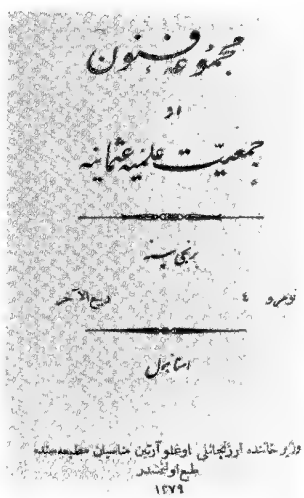 مجموعهٔ فنون
از
جمعیّت علمیهٔ عثمانیه
برنجی سنه
نومرو ٤ ربیع الآخر
استانبول
وزیر خاننده ارزنجانلی اوغلو آرتین خاسبیان مطبعه‌سنده
طبع اولنمشدر
١٢٧٩